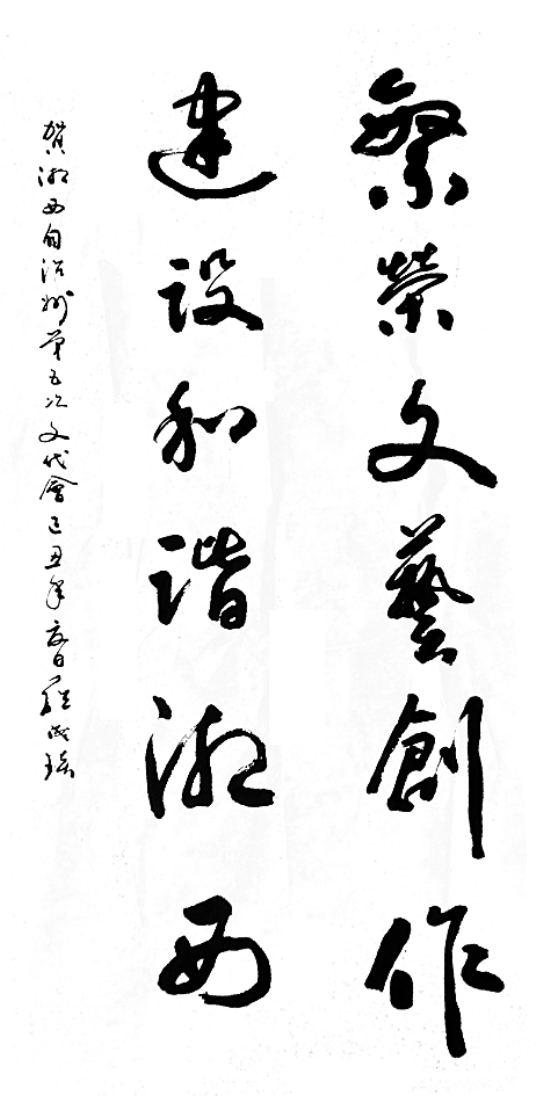 繁榮文藝創作
建设和谐湘西
贺湘西自治州第五次文代會己丑年春日